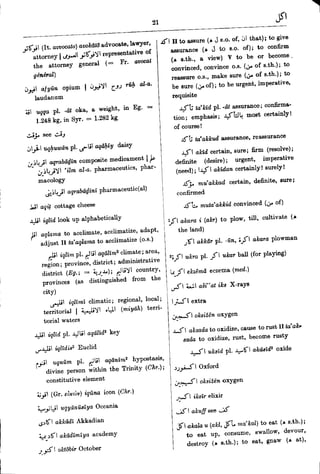 21
اكر
أفوكاتو (It. avvocato) avokātō advocate, lawyer, attorney | الافوكاتو العمومى representative of
the attorney general (= Fr. avocat
général)
افيون afyūn opium | روح الافيون rūḥ al-a.
laudanum
اقة uqqa pl. -āt oka, a weight, in Eg. =
1.248 kg, in Syr. = 1.282 kg
see
اقحوان uqḥuwān pl. اقاحى aqāḥiy daisy
اقرباذين aqrabāḏīn composite medicament |
علم الاقرباذين 'ilm al-a. pharmaceutics, pharmacology
اقرباذينى aqrabāḏīnī pharmaceutic(al)
اقط aqiṭ cottage cheese
اقلد iqlid look up alphabetically
اقلم aqlama to acclimate, acclimatize, adapt,
adjust II ta'aqlama to acclimatize (o.s.)
اقليم iqlīm pl. اقاليم aqālīm² climate; area,
region; province, district; administrative
district (Eg.; = مديرية); الاقاليم country,
provinces (as distinguished from the
city)
اقليمى iqlīmī climatic; regional, local;
territorial | المياه الاقليمية (miyāh) territorial waters
اقليد iqlīd pl. اقاليد aqālīd² key
اقليدس iqlīdis² Euclid
اقنوم uqnūm pl. اقانيم aqānīm² hypostasis,
divine person within the Trinity (Chr.);
constitutive element
(Gr. εἰκών) īqūna icon (Chr.)
اوقيانوسيا uqyānūsiya Oceania
اكادى akkādī Akkadian
اكاديمية akādīmīya academy
اكتوبر oktōbir October
اكد II to assure (ه s.o. of, ان that); to give
assurance (ل to s.o. of); to confirm
(a s.th., a view) V to be or become
convinced, convince o.s. (من of s.th.); to
reassure o.s., make sure (من of s.th.); to
be sure (من of); to be urgent, imperative,
requisite
تأكيد ta'kīd pl. -āt assurance; confirmation; emphasis; بالتأكيد most certainly!
of course!
تأكد ta'akkud assurance, reassurance
اكيد akīd certain, sure; firm (resolve);
definite (desire); urgent, imperative
(need); اكيدا akīdan certainly! surely!
مؤكد mu'akkad certain, definite, sure;
confirmed
متأكد muta'akkid convinced (من of)
اكر akara i (akr) to plow, till, cultivate (ه
the land)
اكار akkār pl. -ūn, اكرة akara plowman
اكرة ukra pl. اكر ukar ball (for playing)
اكزيما ekzēmā eczema (med.)
اشعة اكس aši''at iks X-rays
اكسترا extra
اكسجين oksižēn oxygen
اكسد aksada to oxidize, cause to rust II ta'aksada to oxidize, rust, become rusty
اكسيد uksīd pl. اكاسيد akāsīd² oxide
اكسفورد Oxford
اكسيجين oksižēn oxygen
اكسير iksīr elixir
اكف akuff see كف
اكل akala u (akl, مأكل ma'kal) to eat (ه s.th.);
to eat up, consume, swallow, devour,
destroy (ه s.th.); to eat, gnaw (ه at),